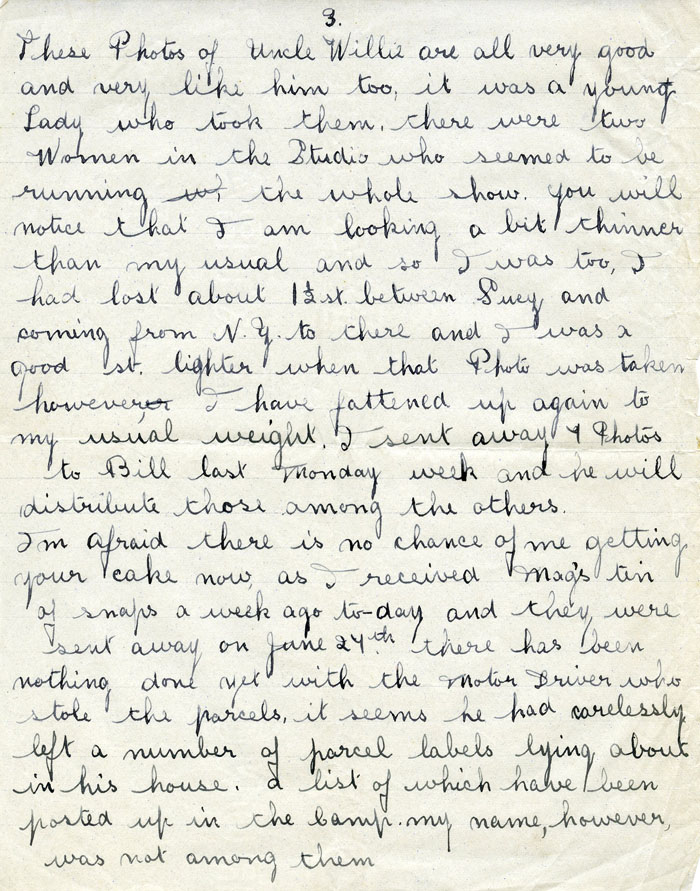 3.
These Photos of Uncle Willie are all very good
and very like him too, it was a young
Lady who took them, there were two
Women in the Studio who seemed to be
running the whole show. you will
notice that I am looking a bit thinner
than my usual and so I was too, I
had lost about 1½ st. between Suez and
coming from N.Z. to there and I was a
good st. lighter when that Photo was taken
however, I have fattened up again to
my usual weight. I sent away 9 Photos
to Bill last Monday week and he will
distribute those among the others.
I'm afraid there is no chance of me getting
your cake now, as I received Mag's tin
of snaps a week ago to-day and they were
sent away on June 24th. there has been
nothing done yet with the Motor Driver who
stole the parcels, it seems he had carelessly
left a number of parcel labels lying about
in his house. a list of which have been
posted up in the Camp. my name, however,
was not among them